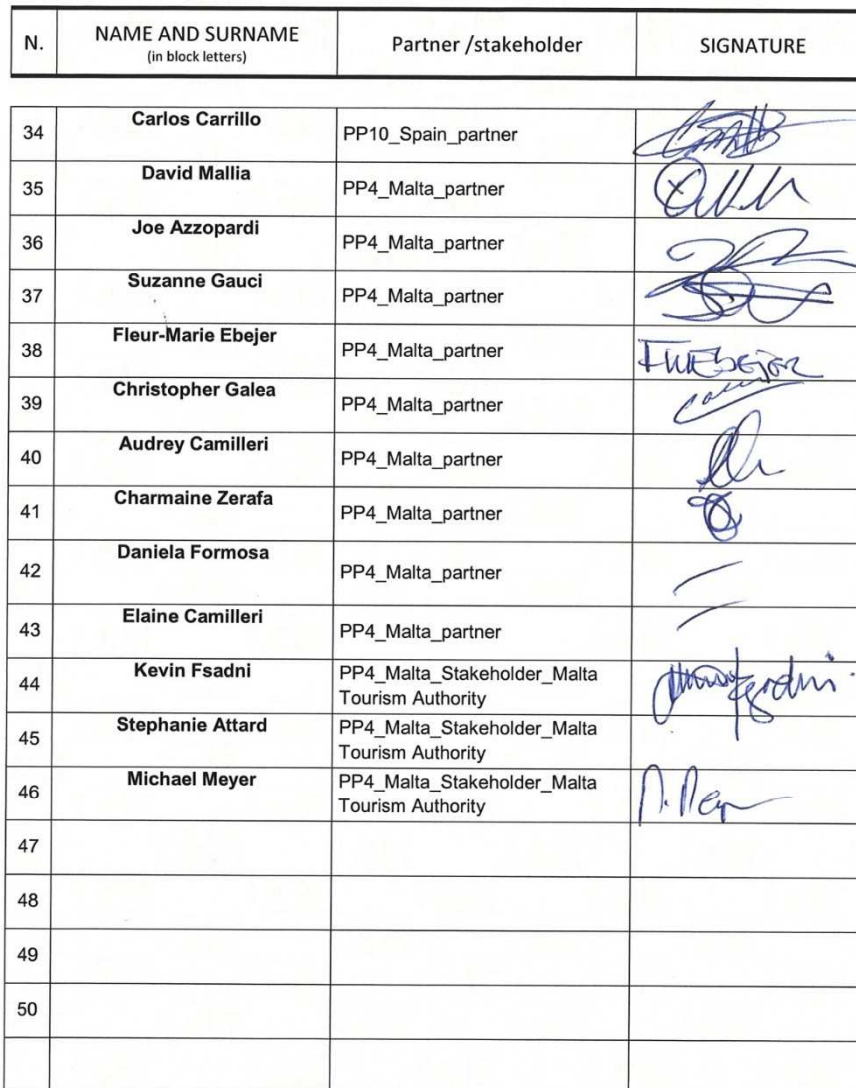 N. NAME AND SURNAME Partner /stakeholder SIGNATURE
(in block letters)
34 Carlos Carrillo PP10_Spain_partner
35 David Mallia PP4_Malta_partner
36 Joe Azzopardi PP4_Malta_partner
37 Suzanne Gauci PP4_Malta_partner
38 Fleur-Marie Ebejer PP4_Malta_partner FMEBEJER
39 Christopher Galea PP4_Malta_partner
40 Audrey Camilleri PP4_Malta_partner
41 Charmaine Zerafa PP4_Malta_partner
42 Daniela Formosa PP4_Malta_partner
43 Elaine Camilleri PP4_Malta_partner
44 Kevin Fsadni PP4_Malta_Stakeholder_Malta
Tourism Authority
45 Stephanie Attard PP4_Malta_Stakeholder_Malta
Tourism Authority
46 Michael Meyer PP4_Malta_Stakeholder_Malta
Tourism Authority
47
48
49
50